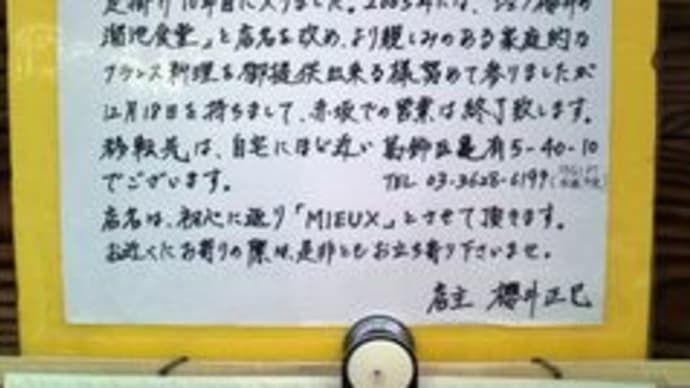 足掛け10年目に入りました。2005年には、
溜池食堂」と店名を改め、より親しみのある家庭的な
フランス料理を御提供出来る様努めて参りましたが
12月18日を持ちまして、赤坂での営業は終了致します。
移転先は、自宅にほど近い葛飾区亀有5-40-10
でございます。 TEL 03-3628-6199
店名は、初心に返り「MIEUX」とさせて頂きます。
お近くにお寄りの際は、是非ともお立ち寄り下さいませ。
店主 櫻井正巳